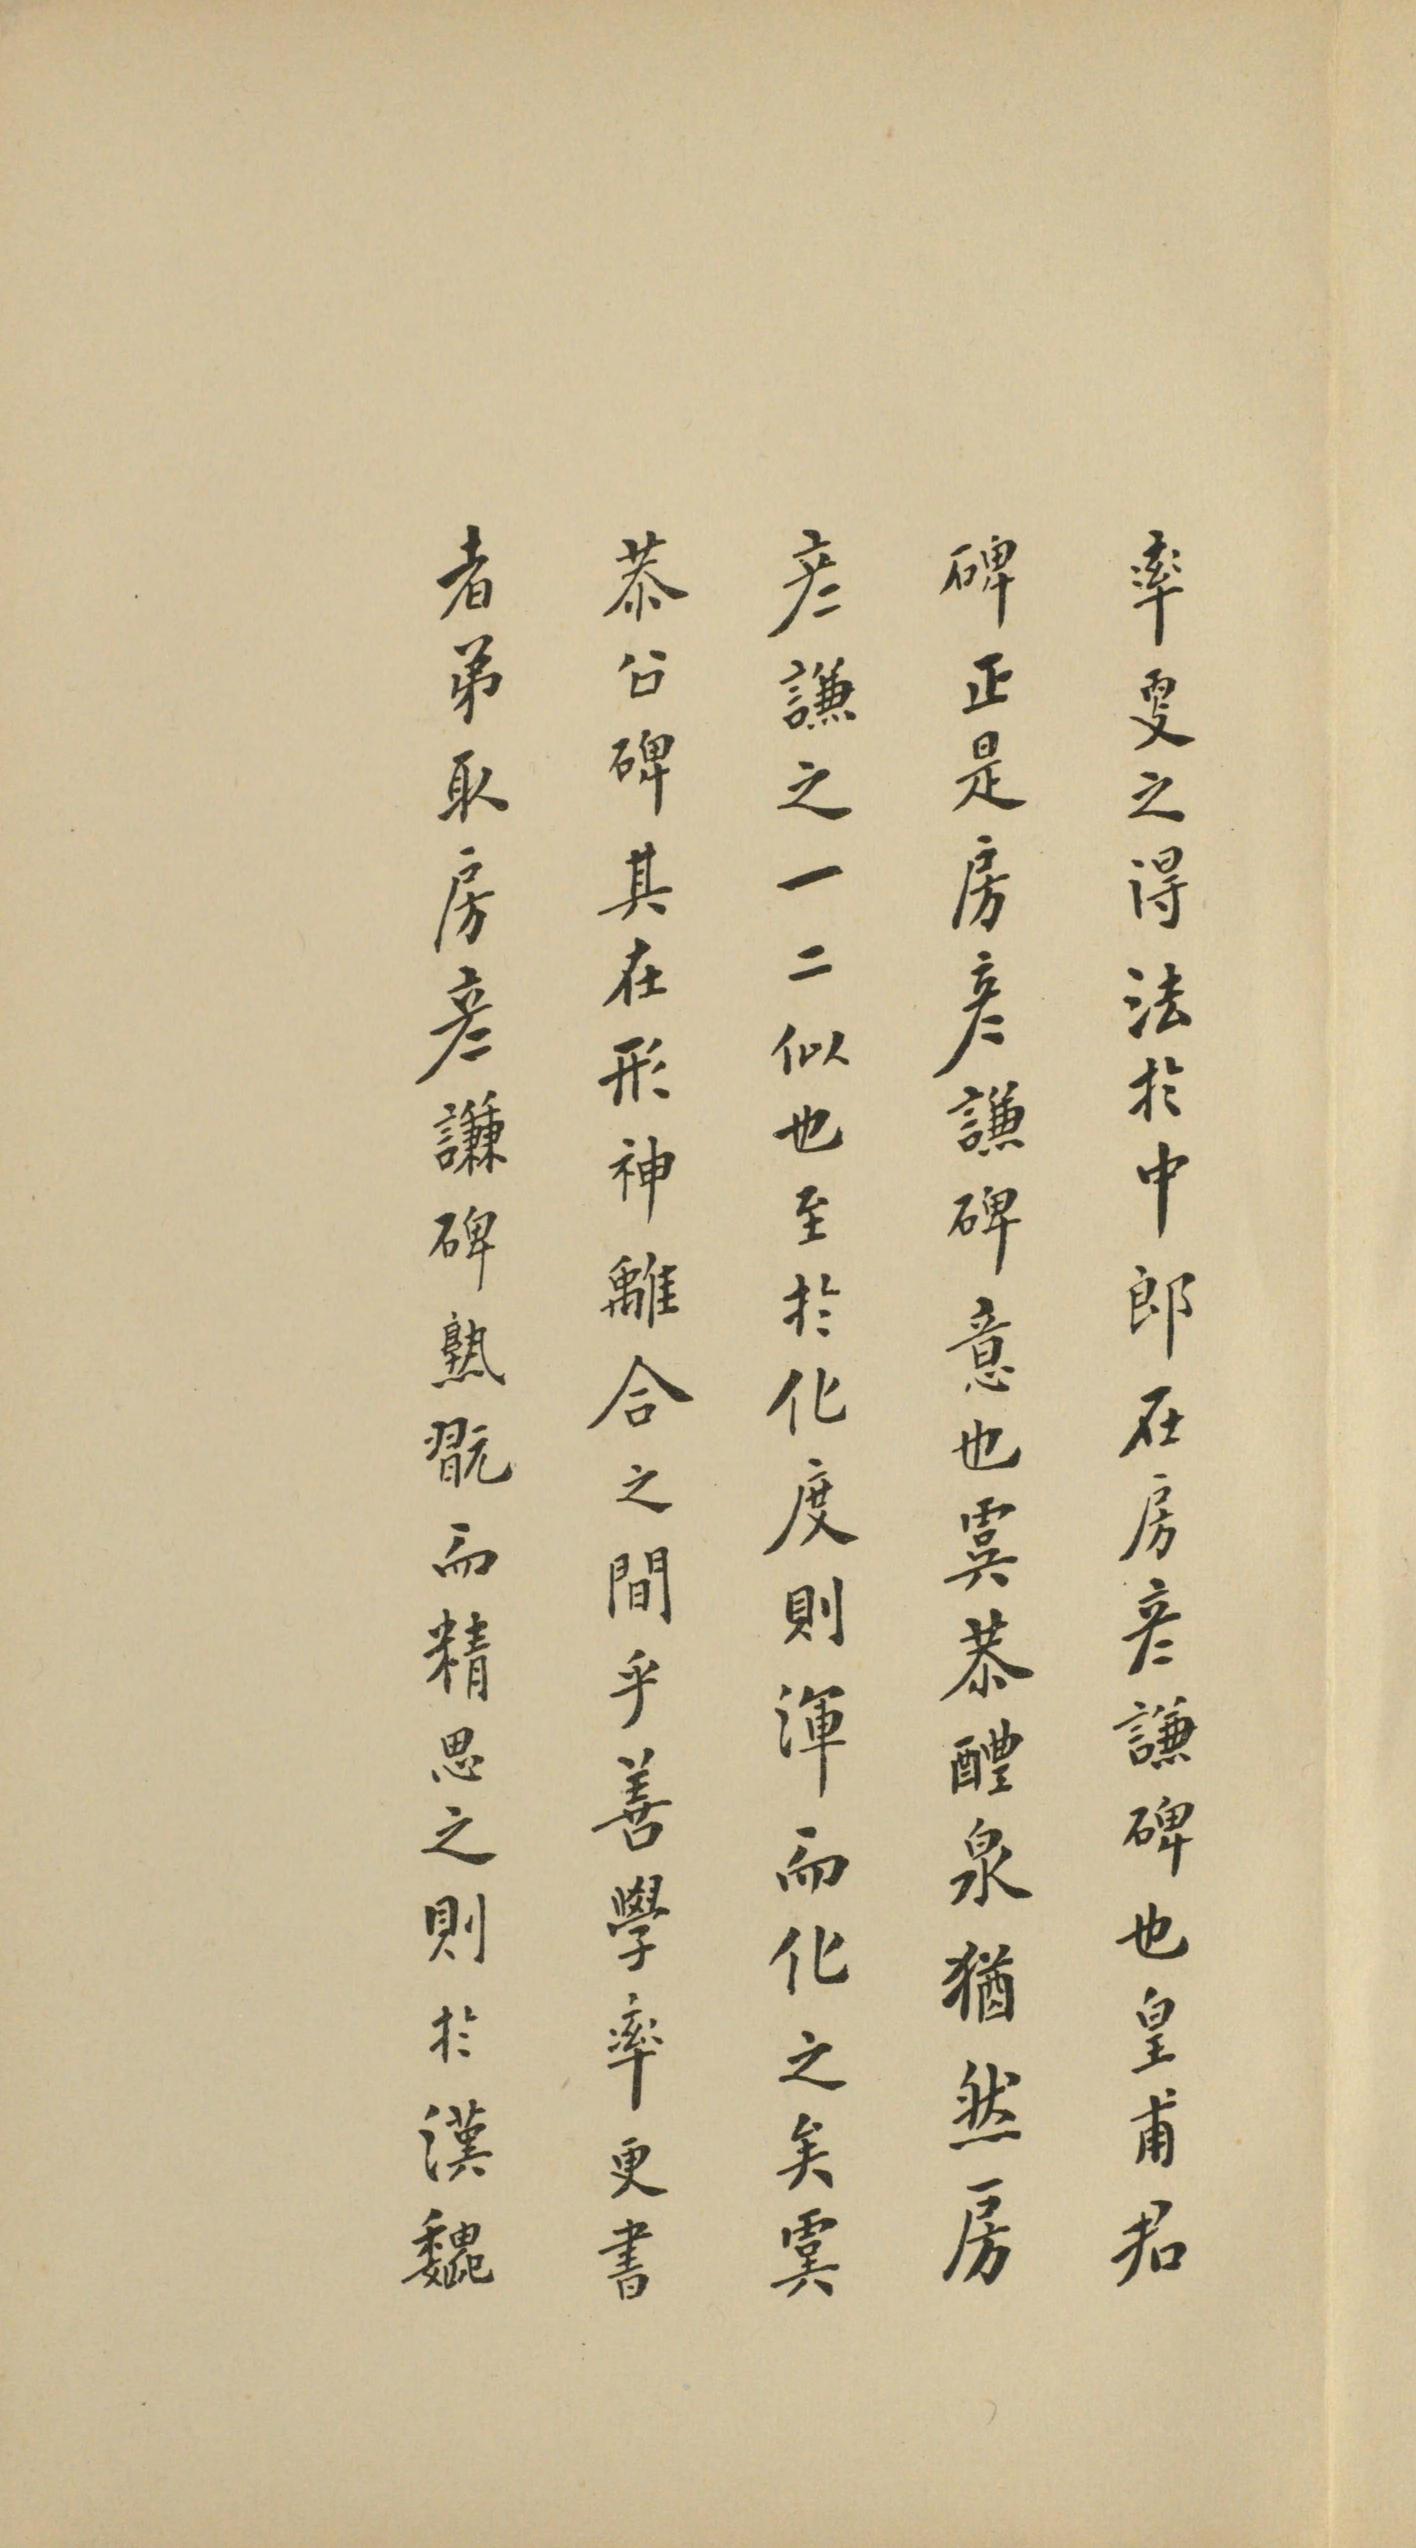 率更之得法於中郎在房彥謙碑也皇甫君
碑正是房彥謙碑意也虞恭醴泉猶然房
彥謙之一二似也至於化度則渾而化之矣虞
恭公碑其在形神離合之間乎善學率更書
者弟取房彥謙碑熟翫而精思之則於漢魏